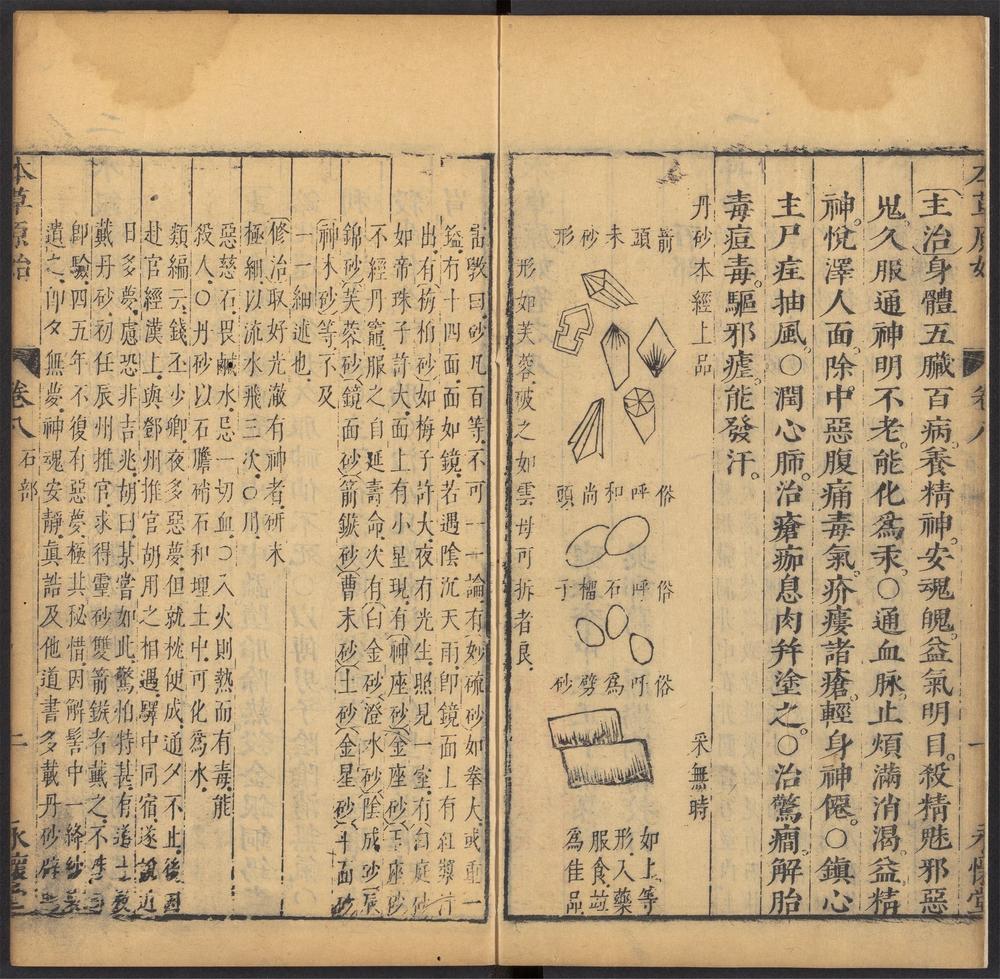 主治身體五臟百病養精神安魂魄益氣明目殺精魅邪惡
鬼久服通神明不老能化為汞○通血脉止煩滿消渴益精
神悅澤人面除中惡腹痛毒氣疥瘻諸瘡輕身神僊○鎮心
主尸疰抽風○潤心肺治瘡痂息肉幷塗之○治驚癇解胎
毒痘毒驅邪瘧能發汗
丹砂本經上品
采無時
箭頭
朱砂形
俗呼和尚頭
俗呼石榴子
俗呼為劈砂
如上等
形入藥
服食並
為佳品
形如芙蓉破之如雲母可拆者良
雷斅曰砂凡百等不可一一論有妙硫砂如拳大或重一
鎰有十四面面如鏡若遇陰沉天雨卽鏡面上有紅漿汁
出有梅柏砂如梅子許大夜有光生照見一室有白庭砂
如帝珠子許大面上有小星現有神座砂金座砂玉座砂
不經丹竈服之自延壽命次有白金砂澄水砂陰成砂辰
錦砂芙蓉砂鏡面砂箭鏃砂曹末砂土砂金星砂平面砂
神末砂等不及
一一細述也
修治取好光澈有神者研末
極細以流水飛三次○用
惡慈石畏鹹水忌一切血○入火則熱而有毒能
殺人○丹砂以石膽硝石和埋土中可化為水
類編云錢丕少卿夜多惡夢但就枕便成通夕不止後因
赴官經漢上與鄧州推官胡用之相遇驛中同宿遂說近
日多夢慮恐非吉兆胡曰某嘗如此驚怕特甚有道士教
戴丹砂初任辰州推官求得靈砂雙箭鏃者戴之不
卽驗四五年不復有惡夢極共秘惜因解髻中一絳紗
遺之卽夕無夢神魂安靜眞誥及他道書多載丹砂辟惡
本草原始
卷八
石部
二
永懷堂
本草原始
卷八
一
永懷堂